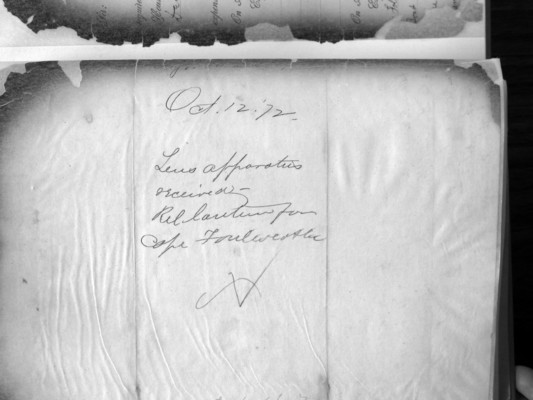 Oct. 12. '72.
Lens apparatus
received -
Rel lantern for
Cape Foulweather